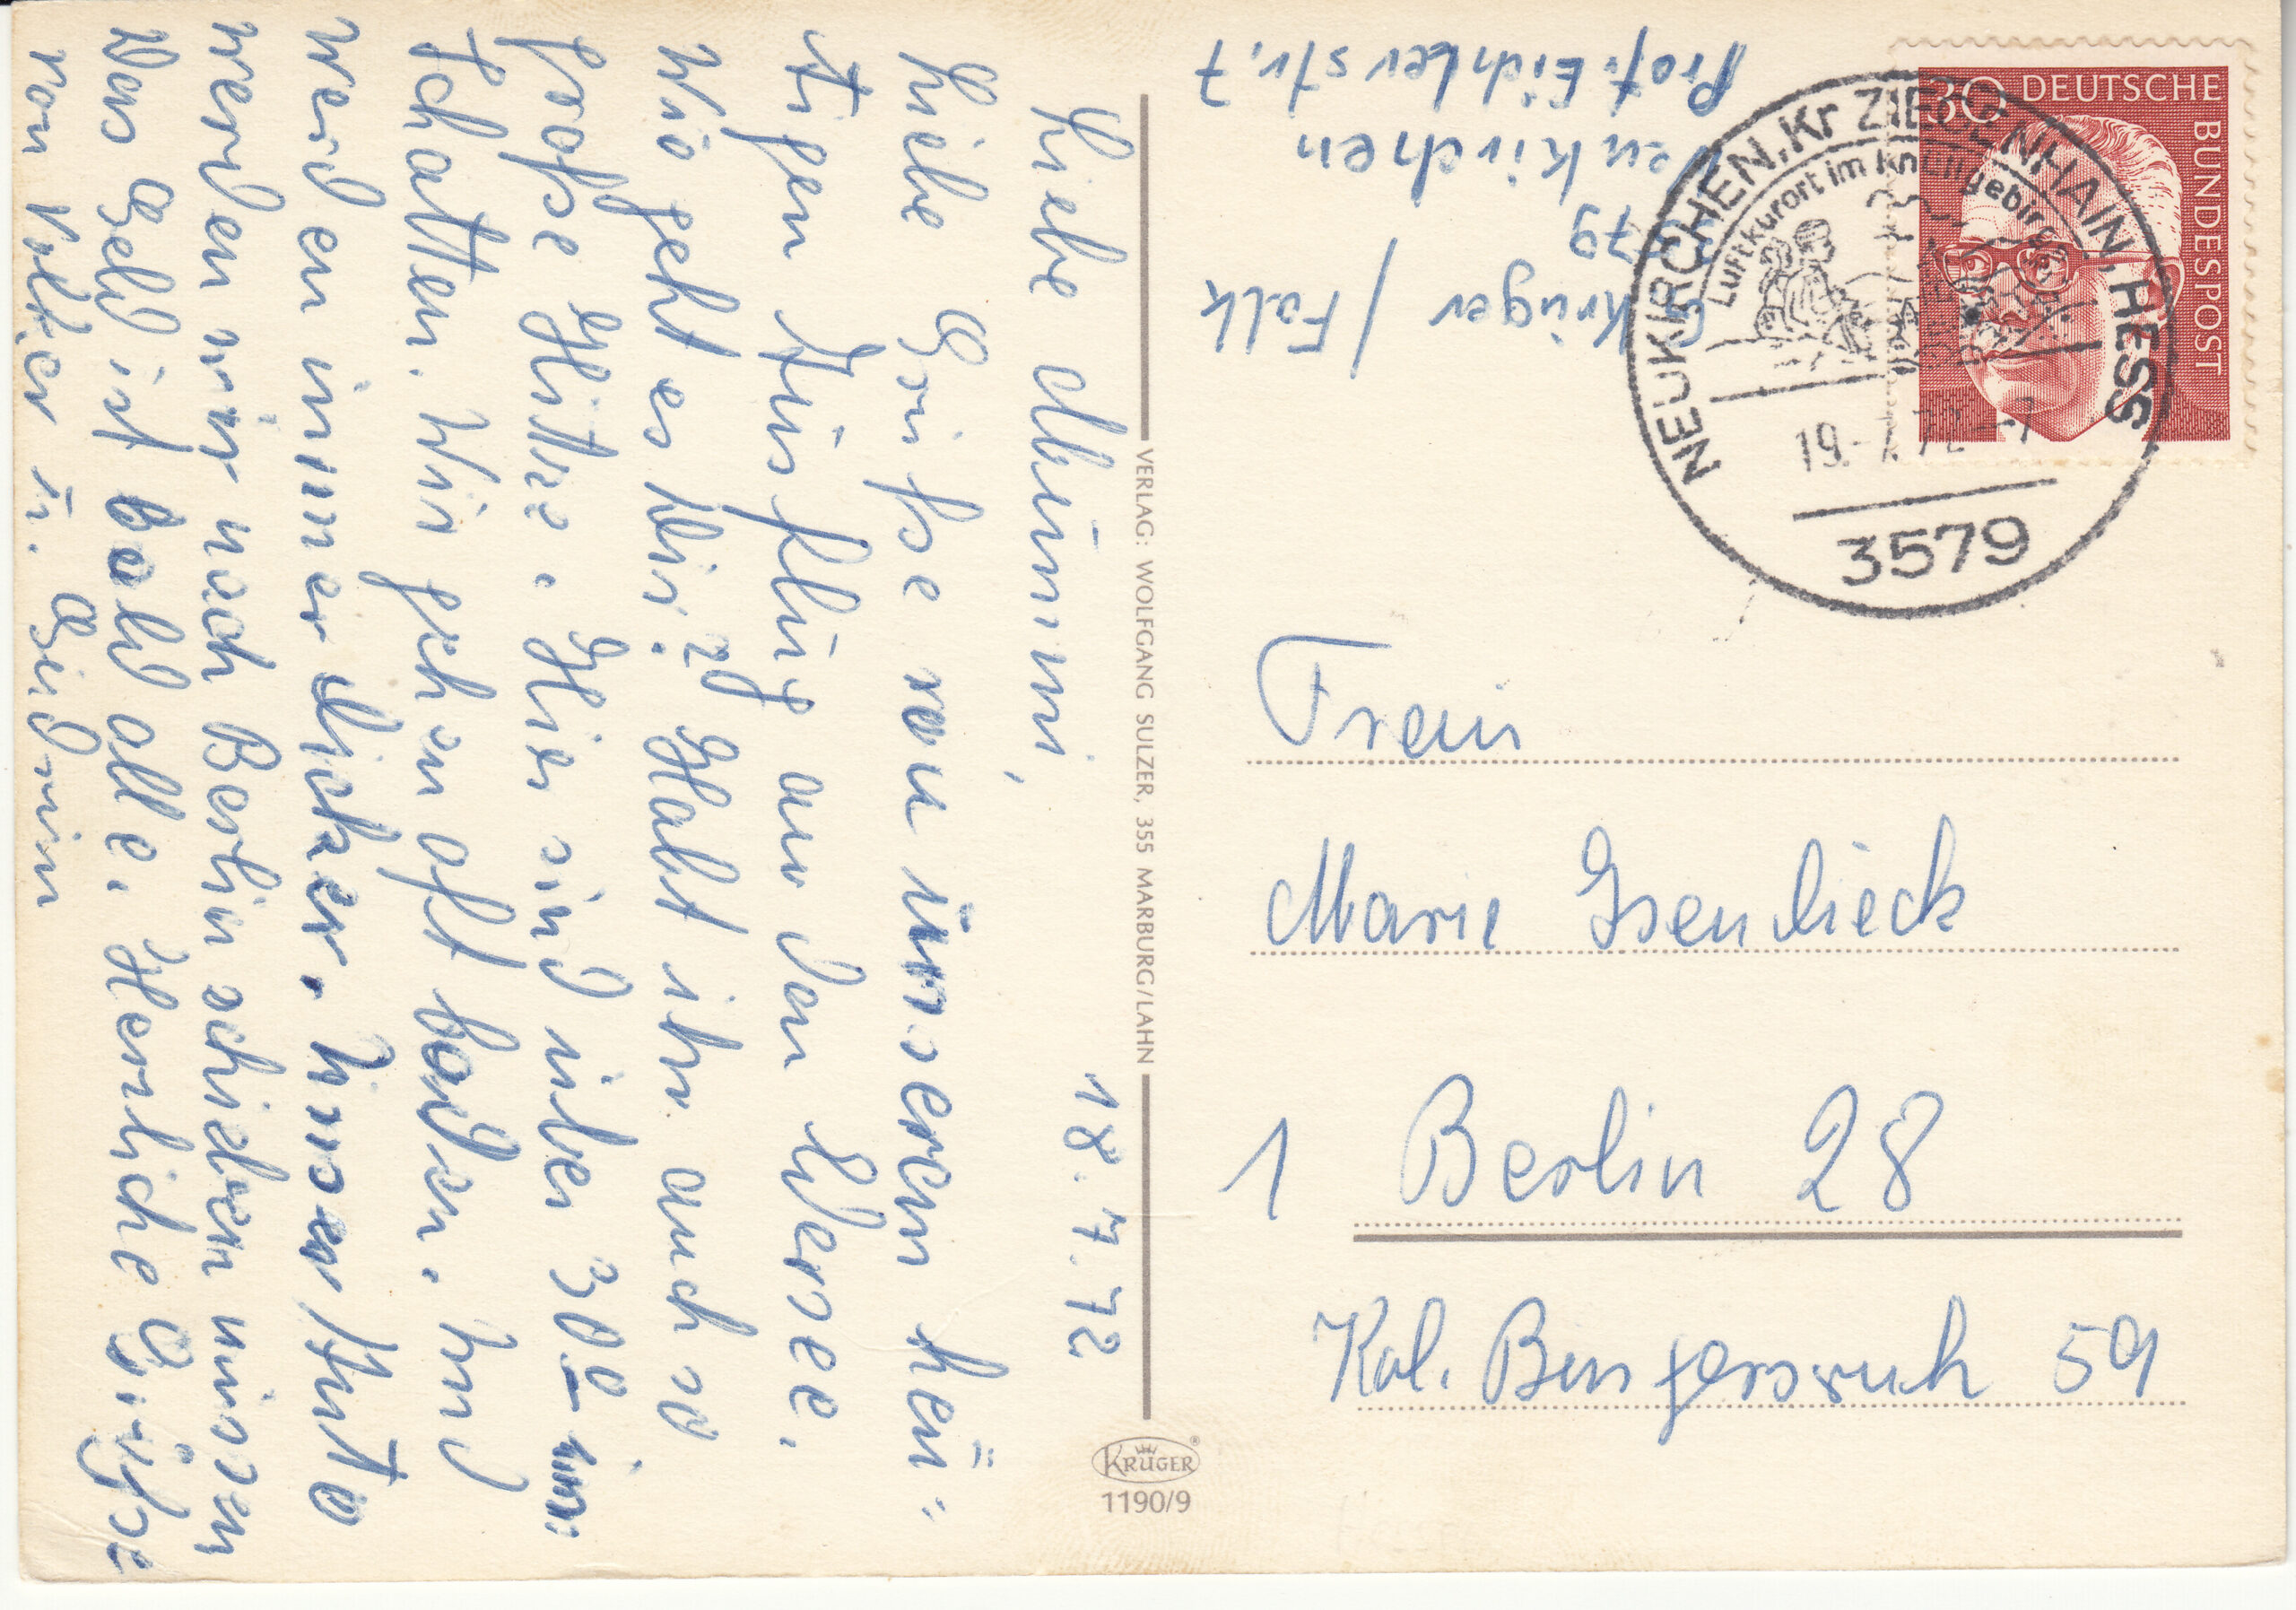 18.7.72
Liebe Mummi,
Liebe Grüße von unserem heu=
tigen Ausflug an den Edersee.
Wie geht es Dir? Habt ihr auch so
große Hitze. Hier sind über 30° im
Schatten. Wir gehen oft baden. Und
werden immer dicker. Unser Auto
werden wir nach Berlin schieben müssen
Das Geld ist bald alle. Herzliche Grüße
von Volker u. Gudrun
VERLAG: WOLFGANG SULZER, 355 MARBURG/LAHN
KRÜGER
1190/9
Krüger / Falk
79
Neukirchen
Prof. Eichlerstr. 7
30 DEUTSCHE BUNDESPOST
NEUKIRCHEN, Kr ZIEGENHAIN, HESS
Luftkurort im Knüllgebirge
19.-7.72
3579
Frau
Marie Isenbieck
1 Berlin 28
Kol. 59